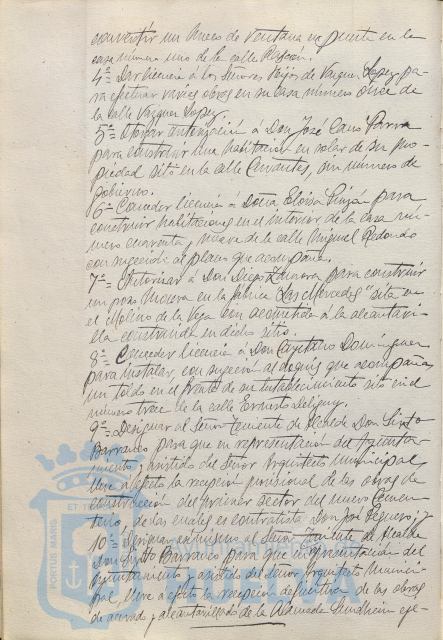 convertir un hueco de ventana en puerta en la
casa número uno de la calle Rascón.
4º = Dar licencia á los Señores Hijos de Vazquez Lopez pa-
ra efectuar varias obras en su casa número once de
la calle Vazquez Lopez.
5º = Otorgar autorización á Don José Cano Parra
para construir una habitación en solar de su pro-
piedad sito en la calle Cervantes, sin número de
gobierno.
6º = Conceder licencia á Doña Eloisa Pinzón para
construir habitaciones en el interior de la casa nú-
mero cuarenta y nueve de la calle Miguel Redondo
con sujeción al plano que acompaña.
7º = Autorizar á Don Diego Zamora para construir
un pozo Mouras en la fábrica "Las Mercedes" sita en
el Molino de la Vega con acometida á la alcantari-
lla construida en dicho sitio.
8º = Conceder licencia á Don Cayetano Dominguez
para instalar, con sujeción al diseño que acompaña,
un toldo en el frente de su establecimiento sito en el
número trece de la calle Ernesto Deligny.
9º = Designar al Señor Teniente de Alcalde Don Sixto
Barranco para que en representación del Ayunta-
miento y asistido del Señor Arquitecto Municipal,
lleve a efecto la recepción provisional de las obras de
construcción del primer sector del nuevo Cemen-
terio, de las cuales es contratista Don José Peguero; y
10º = Designar asimismo al Señor Teniente de Alcalde
Don Sixto Barranco para que en representación del
Ayuntamiento y asistido del Señor Arquitecto Munici-
pal, lleve a efecto la recepción definitiva de las obras
de acerado y alcantarillado de la Alameda Sundheim eje-
PORTUS MARIS ET